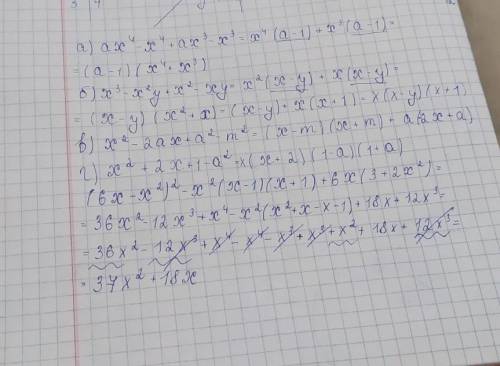 3 | 4
12
а) ax⁴ - x⁴ + ax³ - x³ = x⁴ (a-1) + x³ (a-1) =
= (a-1) (x⁴ + x³)
б) x³ - x²y + x² - xy = x² (x-y) + x (x-y) =
= (x-y) (x² + x) = (x-y) + x (x+1) = x (x-y) (x+1)
в) x² - 2ax + a² - m² = (x-m) (x+m) + a(2x+a)
г) x² + 2x + 1 - a² = x (x+2) (1-a) (1+a)
(6x - x²)² - x² (x-1) (x+1) + 6x (3+2x²) =
= 36x² - 12x³ + x⁴ - x² (x² + x - x - 1) + 18x + 12x³ =
= 36x² - 12x³ + x⁴ - x⁴ - x³ + x³ + x² + 18x + 12x³ =
= 37x² + 18x